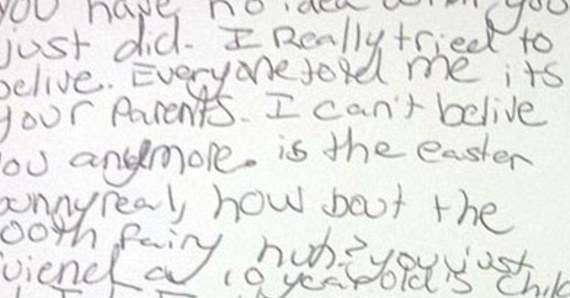 you have no idea you
just did. I Really tried to
belive. Everyone me its
your Parents. I can't belive
ou anymore. is the easter
unny real, how bout the
ooth fairy huh? you just
a 10 year old's chil